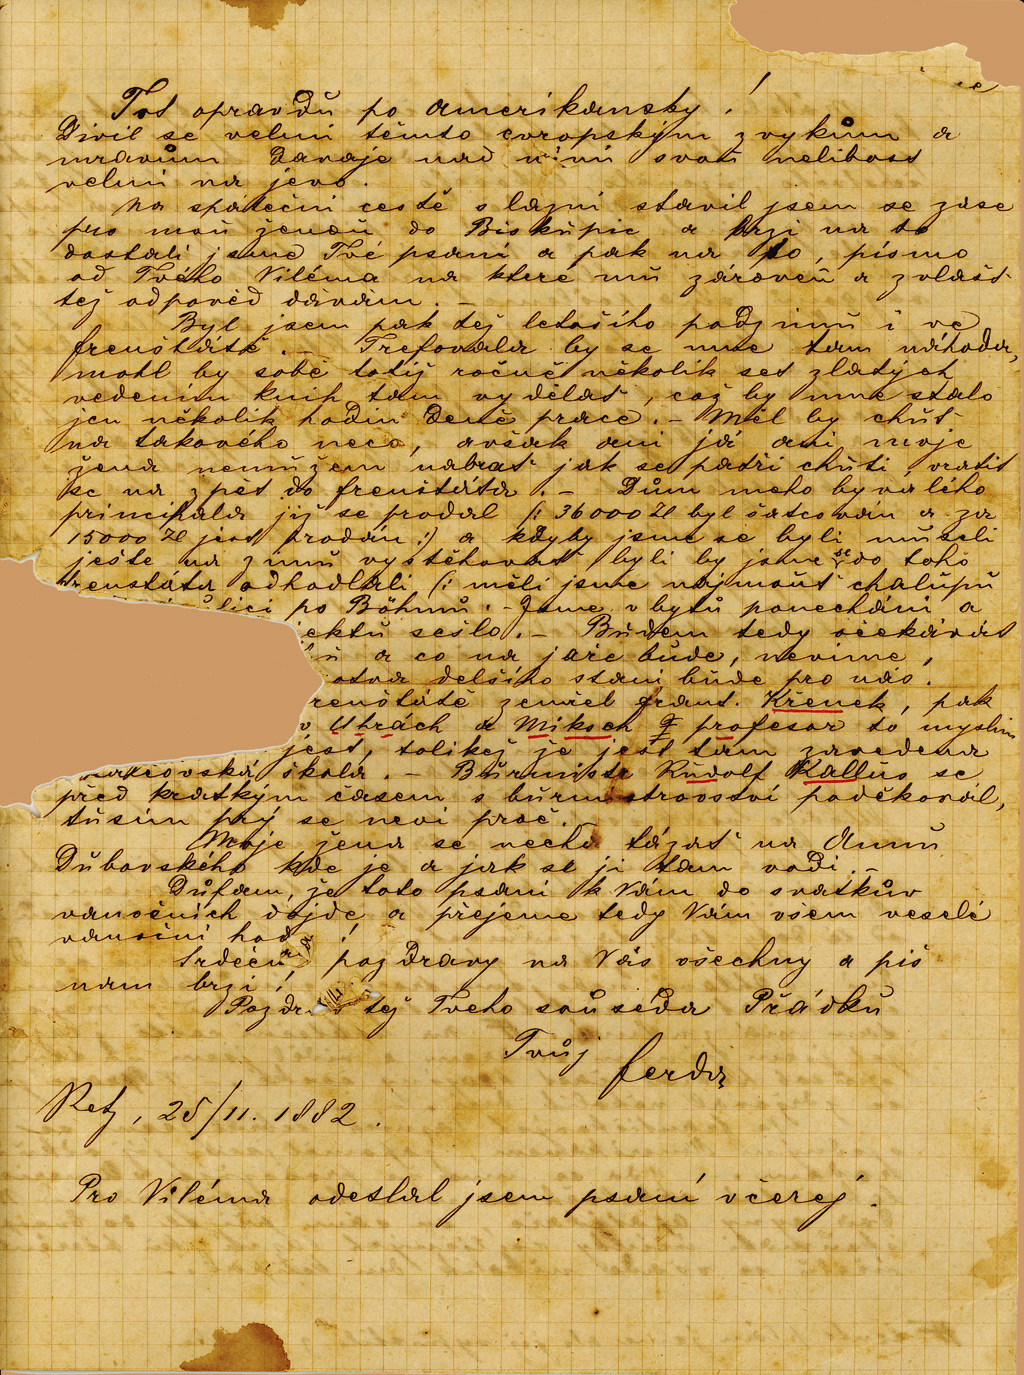 Tot opravdu po amerikánsky!
Divil se velmi těmto evropským zvykům a
mravům dávaje nad nimi svou nelibost
velmi na jevo.
Na spáteční cestě s lázní stavil jsem se zase
pro mou ženou do Biskupic a brzi na to
dostali jsme Tvé psaní a pak na to, písmo
od Tvého Viléma na které mu zároveň a zvlášť
tej odpověď dávám. –
Byl jsem pak tej letošího podzimu i ve
frenštátě. – Trefovala by se mne tam náhoda,
mohl by sobě totij ročně několik set zlatých
vedením knih tam vydělat, což by mne stálo
jen několik hodin deně práce. – Měl by chuť
na takového neco, avšak ani já ani moje
žena nemužem nabrat jak se patří chuti, vratit
se na zpět do frenštáta. – Dům meho byvalého
principala již se prodal /: 36000 Zl byl šatcován a za
15000 Zl jest prodán :/ a kdyby jsme se byli museli
ješte na zimu vystěhovat byli by jsme se do toho
frenstáta odhodlali /: měli jsme najmout chalupu
ulici po Böhmu. – Jsme v bytu ponecháni a
jektu sešlo. – Budem tedy očekávat
a co na jaře bude, nevíme,
delšího staní bude pro nás.
renštátě zemřel frant. Křenek, pak
v Uhrách a Mikoch F profesor to myslim
jest, tolikej že jest tam zavedena
škola. – Burmistr Rudolf Kallus se
před kratkým časem s burmistrovství poděkovál,
tusím prý se neví proč. –
Moje žena se nechá tázat na Annu
Dubovského kde je a jak se ji tam vodí. –
Dufam, že toto psaní k Vám do svatkuv
vanočních dojde a přejeme tedy Vám všem veselé
vanoční hod !
Srdečn pozdravy na Vás všechny a piš
nam brzi!
Pozdr. tej Tveho souséda Přádku
Tvůj
ferda
Retz, 25/11. 1882.
Pro Viléma odeslal jsem psaní včerej.